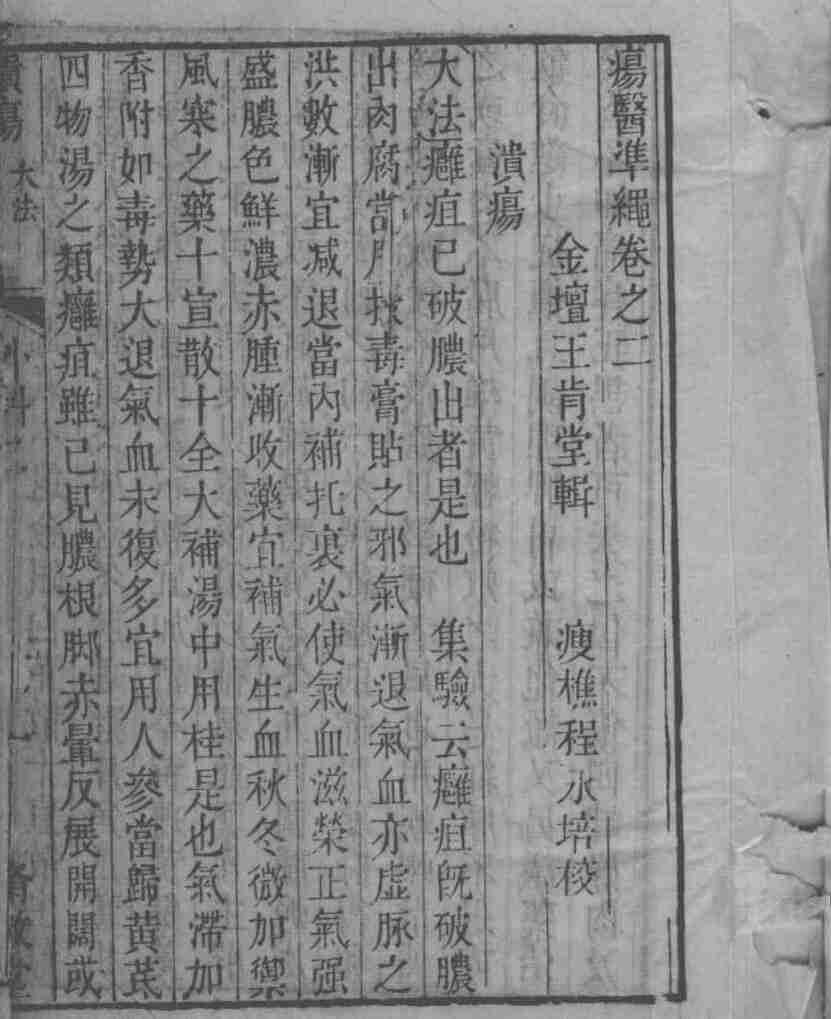 瘍醫準繩卷之二
金壇王肯堂輯 瘦樵程永培校
潰瘍
大法癰疽已破膿出者是也 集驗云癰疽旣破膿
出肉腐當用拔毒膏貼之邪氣漸退氣血亦虛脉之
洪數漸宜减退當內補托裏必使氣血滋榮正氣强
盛膿色鮮濃赤腫漸收藥宜補氣生血秋冬微加禦
風寒之藥十宣散十全大補湯中用桂是也氣滯加
香附如毒勢大退氣血未復多宜用人參當歸黃芪
四物湯之類癰疽雖已見膿根脚赤暈反展開闊或
潰瘍 大法